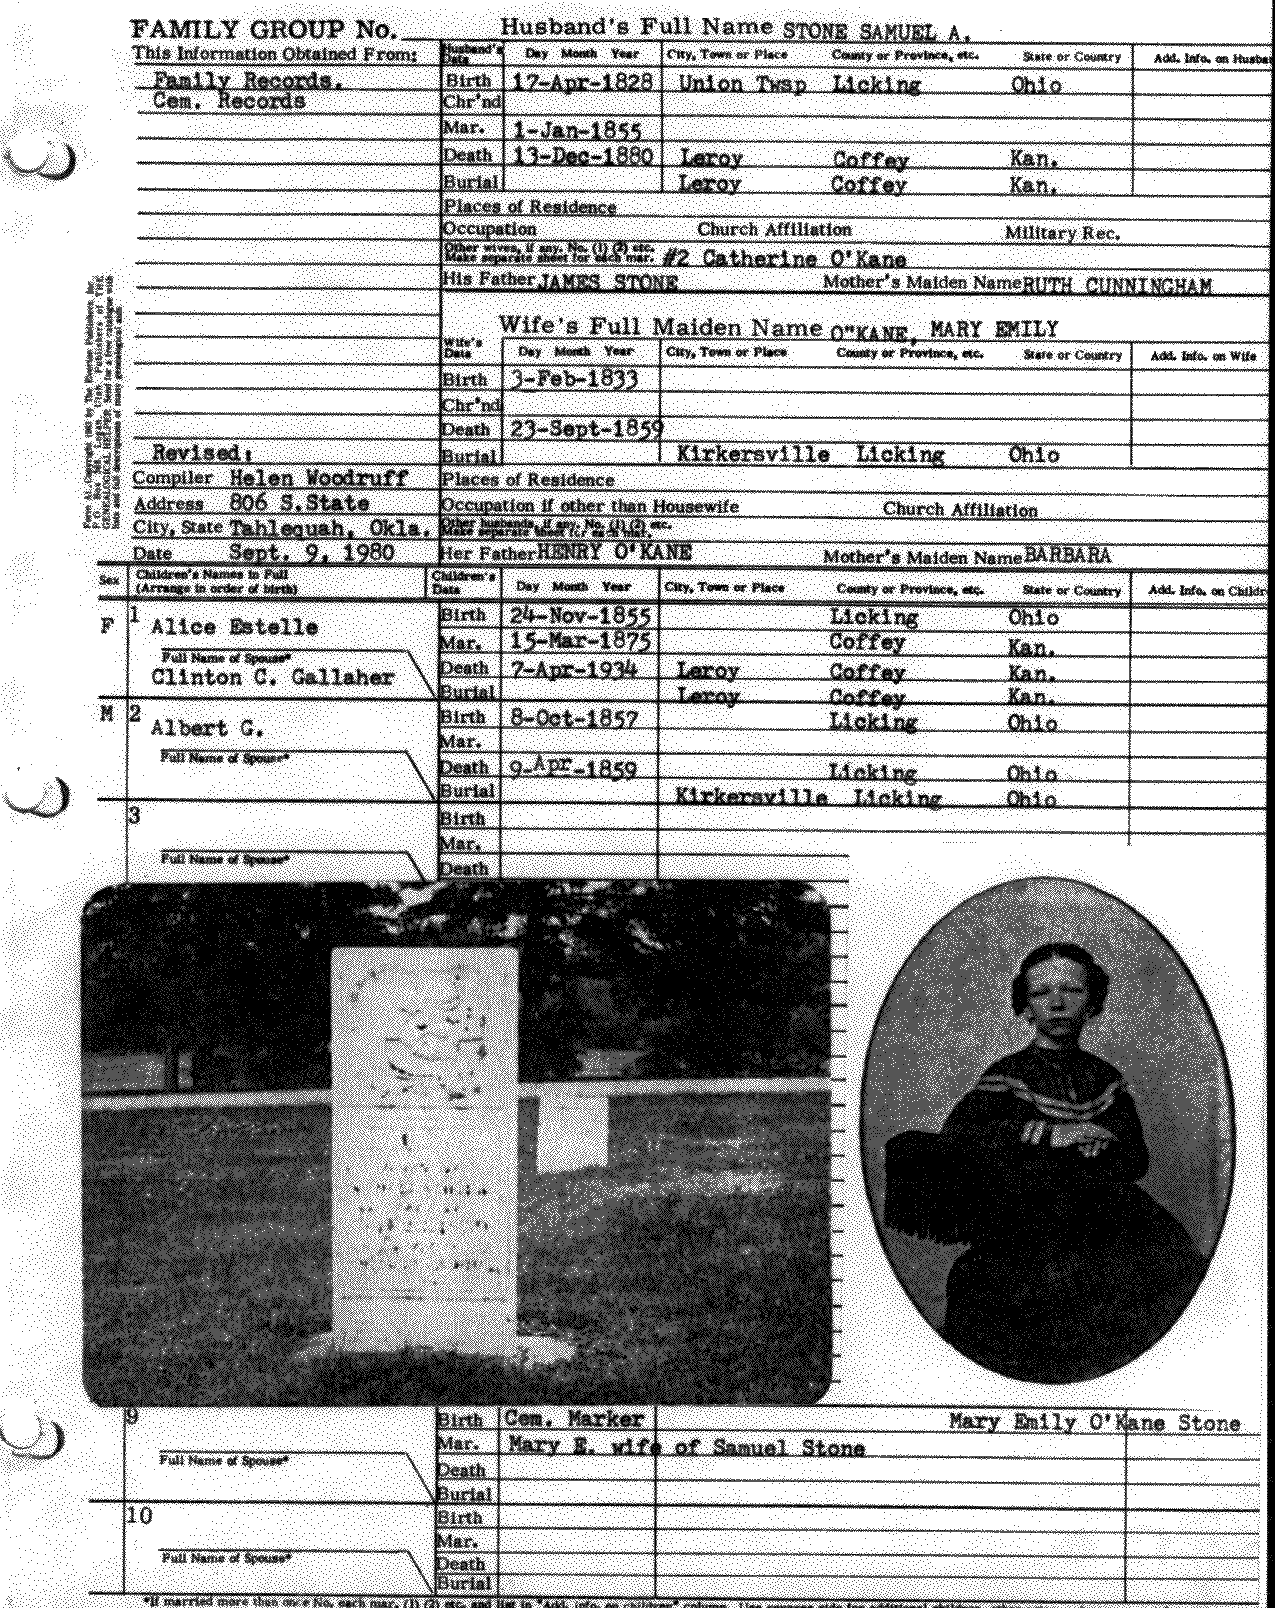 FAMILY GROUP No. Husband's Full Name STONE SAMUEL A.
This Information Obtained From: Husband's Data Day Month Year City, Town or Place County or Province, etc. State or Country Add. Info. on Husba
Family Records. Birth 17-Apr-1828 Union Twsp Licking Ohio
Cem. Records Chr'nd
Mar. 1-Jan-1855
Death 13-Dec-1880 Leroy Coffey Kan.
Burial Leroy Coffey Kan.
Places of Residence
Occupation Church Affiliation Military Rec.
Other wives, if any. No. (1) (2) etc.
Make separate sheet for each mar. #2 Catherine O'Kane
His Father JAMES STONE Mother's Maiden Name RUTH CUNNINGHAM
Wife's Full Maiden Name O"KANE, MARY EMILY
Wife's Data Day Month Year City, Town or Place County or Province, etc. State or Country Add. Info. on Wife
Birth 3-Feb-1833
Chr'nd
Death 23-Sept-1859
Revised: Burial Kirkersville Licking Ohio
Compiler Helen Woodruff Places of Residence
Address 806 S.State Occupation if other than Housewife Church Affiliation
City, State Tahlequah, Okla. Other husbands, if any. No. (1) (2) etc.
Make separate sheet for each mar.
Date Sept. 9, 1980 Her Father HENRY O'KANE Mother's Maiden Name BARBARA
Sex Children's Names in Full
(Arrange in order of birth) Children's Data Day Month Year City, Town or Place County or Province, etc. State or Country Add. Info. on Childr
F 1 Alice Estelle Birth 24-Nov-1855 Licking Ohio
Mar. 15-Mar-1875 Coffey Kan.
Full Name of Spouse* Death 7-Apr-1934 Leroy Coffey Kan.
Clinton C. Gallaher Burial Leroy Coffey Kan.
M 2 Albert G. Birth 8-Oct-1857 Licking Ohio
Mar.
Full Name of Spouse* Death 9-Apr-1859 Licking Ohio
Burial Kirkersville Licking Ohio
3 Birth
Mar.
Full Name of Spouse* Death
9 Birth Cem. Marker Mary Emily O'Kane Stone
Mar. Mary E. wife of Samuel Stone
Full Name of Spouse* Death
Burial
10 Birth
Mar.
Full Name of Spouse* Death
Burial
*If married more than once No. each mar. (1) (2) etc. and list in "Add. info. on children" column.